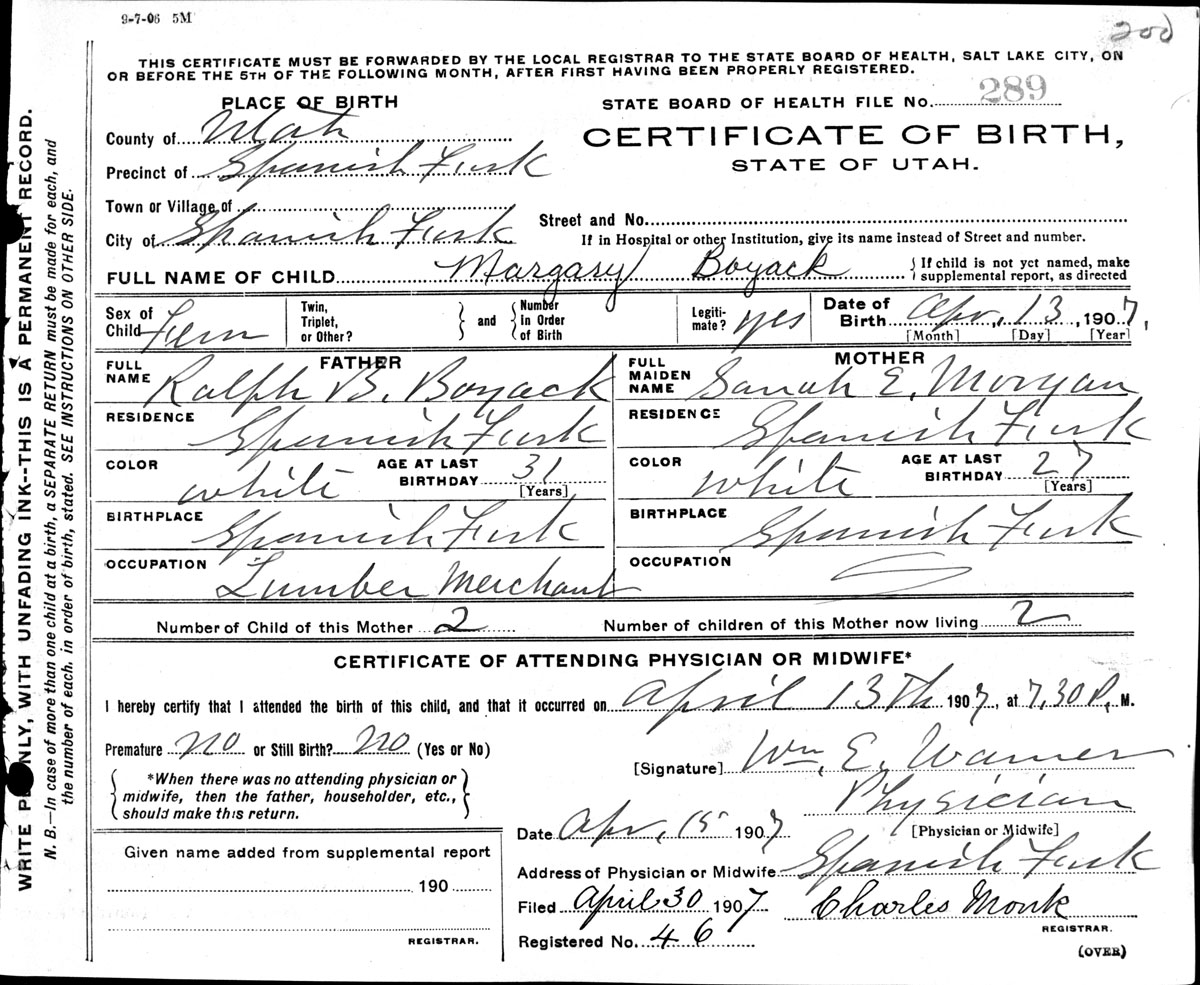 9-7-06 5M
200
THIS CERTIFICATE MUST BE FORWARDED BY THE LOCAL REGISTRAR TO THE STATE BOARD OF HEALTH, SALT LAKE CITY, ON
OR BEFORE THE 5TH OF THE FOLLOWING MONTH, AFTER FIRST HAVING BEEN PROPERLY REGISTERED.
PLACE OF BIRTH
STATE BOARD OF HEALTH FILE No. 289
County of Utah
CERTIFICATE OF BIRTH,
STATE OF UTAH.
Precinct of Spanish Fork
Town or Village of
Street and No.
City of Spanish Fork
If in Hospital or other Institution, give its name instead of Street and number.
FULL NAME OF CHILD Margary Boyack { If child is not yet named, make
supplemental report, as directed
Sex of Child Fem
Twin, Triplet, or Other? } and { Number In Order of Birth
Legiti- mate? yes
Date of Birth Apr, 13, 1907,
[Month] [Day] [Year]
FATHER
MOTHER
FULL NAME Ralph B. Boyack
FULL MAIDEN NAME Sarah E. Morgan
RESIDENCE Spanish Fork
RESIDENCE Spanish Fork
COLOR white AGE AT LAST BIRTHDAY 31 [Years]
COLOR white AGE AT LAST BIRTHDAY 27 [Years]
BIRTHPLACE Spanish Fork
BIRTHPLACE Spanish Fork
OCCUPATION Lumber Merchant
OCCUPATION
Number of Child of this Mother 2
Number of children of this Mother now living 2
CERTIFICATE OF ATTENDING PHYSICIAN OR MIDWIFE*
I hereby certify that I attended the birth of this child, and that it occurred on April 13th 1907, at 7,30 P. M.
Premature no or Still Birth? no (Yes or No)
[Signature] Wm. E. Warner
{ *When there was no attending physician or
midwife, then the father, householder, etc.,
should make this return. }
Physician
[Physician or Midwife]
Date Apr, 15 1907
Given name added from supplemental report
190
REGISTRAR.
Address of Physician or Midwife Spanish Fork
Filed April 30 1907 Charles Monk
REGISTRAR.
Registered No. 46
(OVER)
WRITE PLAINLY, WITH UNFADING INK--THIS IS A PERMANENT RECORD.
N. B.—In case of more than one child at a birth, a SEPARATE RETURN must be made for each, and
the number of each, in order of birth, stated. SEE INSTRUCTIONS ON OTHER SIDE.